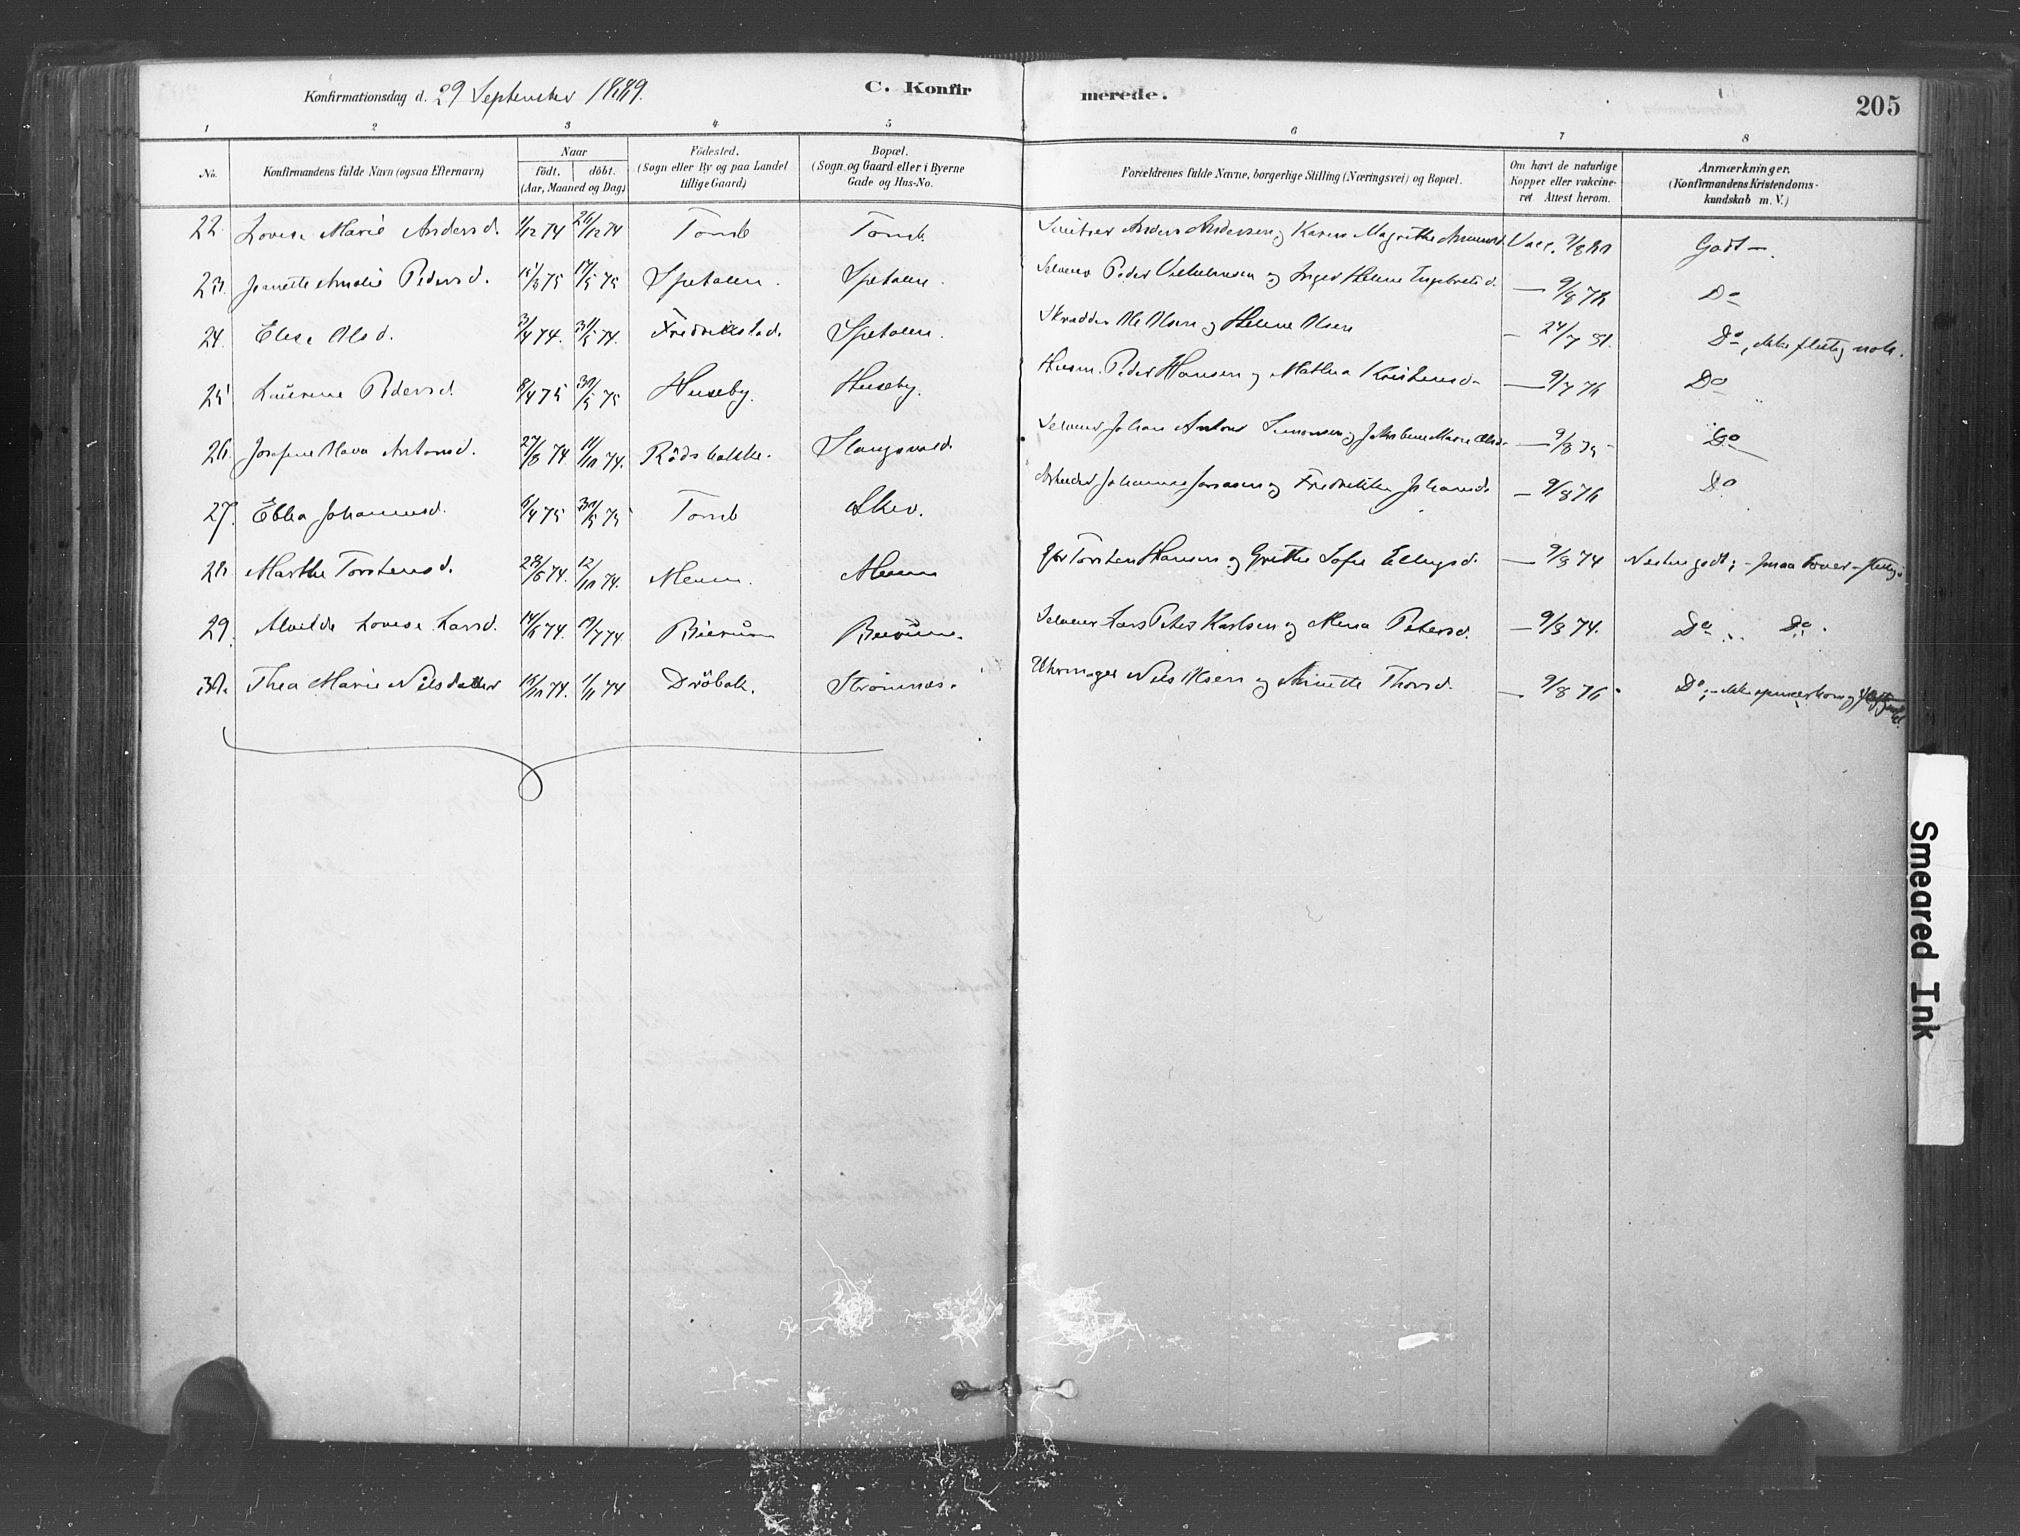 Konfirmationsdag d. 29 September 1889.
C. Konfirmerede.
205
1 2 3 4 5 6 7 8
No.
Konfirmandens fulde Navn (ogsaa Efternavn)
Naar
födt. döbt.
(Aar, Maaned og Dag)
Födested.
(Sogn eller By og paa Landet
tillige Gaard)
Bopæl.
(Sogn og Gaard eller i Byerne
Gade og Hus-No.
Forældrenes fulde Navne, borgerlige Stilling (Næringsvei) og Bopæl.
Om havt de naturlige
Kopper eller vakcine-
ret Attest herom.
Anmærkninger.
(Konfirmandens Kristendoms-
kundskab m. V.)
22. Lovise Marie Andersd. 1/12 74 26/12 74 Tomb Tomb. Anders Andersen og Karen Magrethe Vacc. Godt —
23. Jeanette Amalie Pedersd. 15/3 75 17/5 75 Spetalen. Spetalen. Selveier Peder Vilhelmsen og Inger Helene Engebretsd. — 9/8 76 Do
24. Elise Olsd. 3/4 74. 31/5 74. Fredrikstad. Spetalen. Skrædder Ole Olsen og Helene Olsen — 24/7 81. Do, ikke flittig nok.
25 Laurine Pedersd. 8/4 75 30/5 75 Huseby. Huseby. Husm. Peder Hansen og Mathea Kristensd — 9/7 76 Do
26. Josefine Antonsd. 27/8 74 11/10 74. Rödsbakke. Slangsvold. Selveier Johan Anton Simonsen og Marie Olsd. — 9/8 75 Do
27. Ebba Johannesd. 6/4 75 30/5 75 Tomb Skev. Arbeider Johannes og Fredrikke Johansd. — 9/8 76 Do
28 Marthe Torstensd. 28/6 74. 12/10 74. Menum. Menum Torsten Hansen og Grethe Sofie Ellingsd. — 9/8 74 Nesten godt;
29. Alvilde Lovise Larsd. 14/6 74. 19/7 74 Bierum Beerum. Selveier Lars Peter Karlsen og Mina Petersd. — 9/8 74. Do Do.
30. Thea Marie Nilsdatter 15/10 74. 1/11 74 Dröbak. Strömnes. Uhrmager Nils Olsen og Annette Thorsd. — 9/8 76 Do; ikke opmærksom og
Smeared Ink